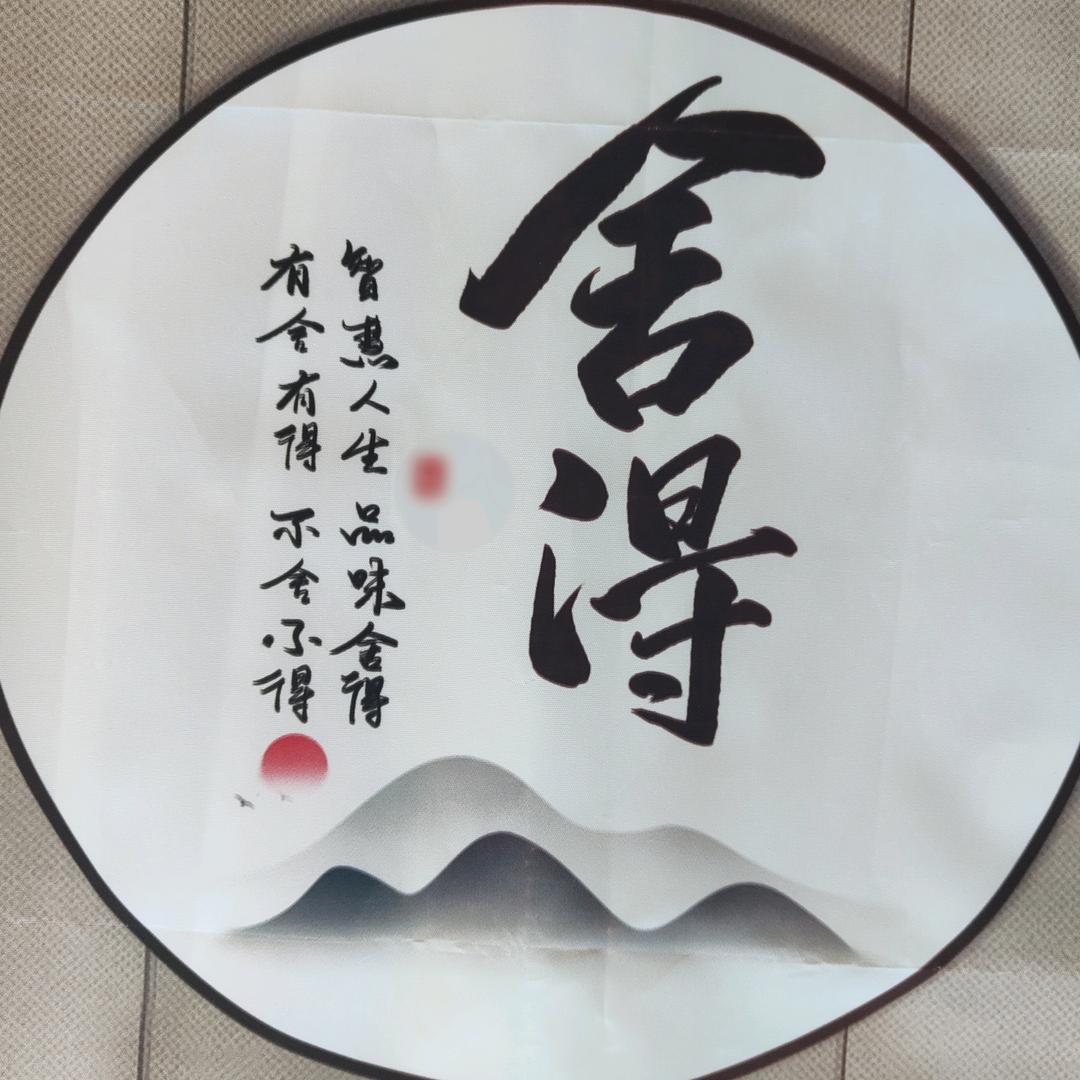 舍得
智慧人生 品味舍得
有舍有得 不舍不得